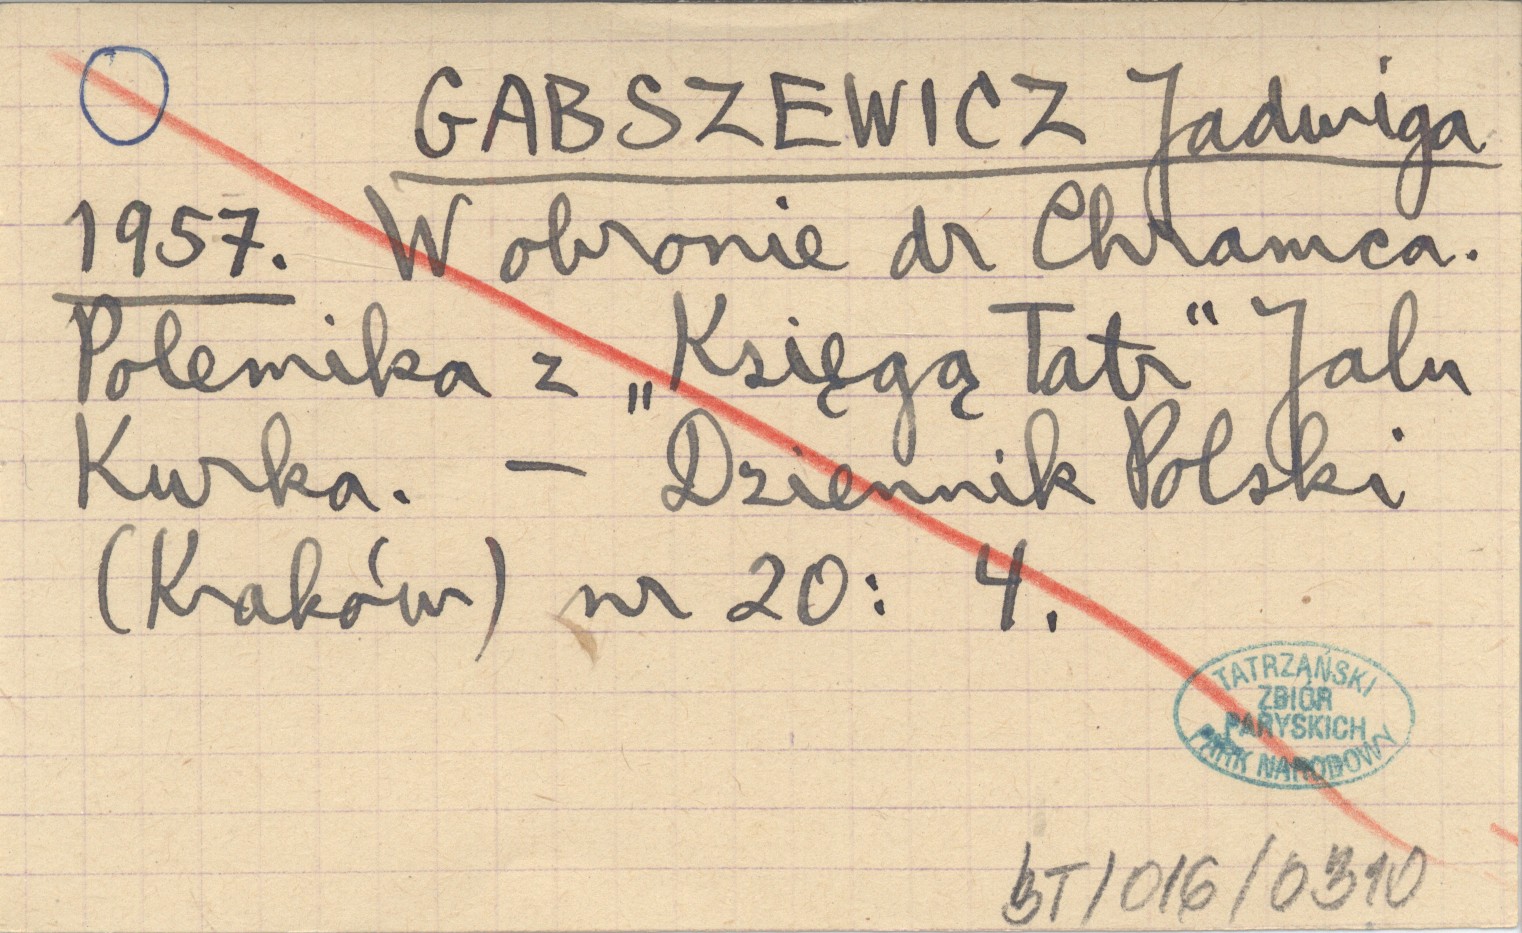 GABSZEWICZ Jadwiga
1957. W obronie dr Chramca.
Polemika z „Księgą Tatr" Jalu
Kurka. — Dziennik Polski
(Kraków) nr 20: 4.
TATRZAŃSKI
ZBIÓR
PARYSKICH
PARK NARODOWY
BT/016/0310